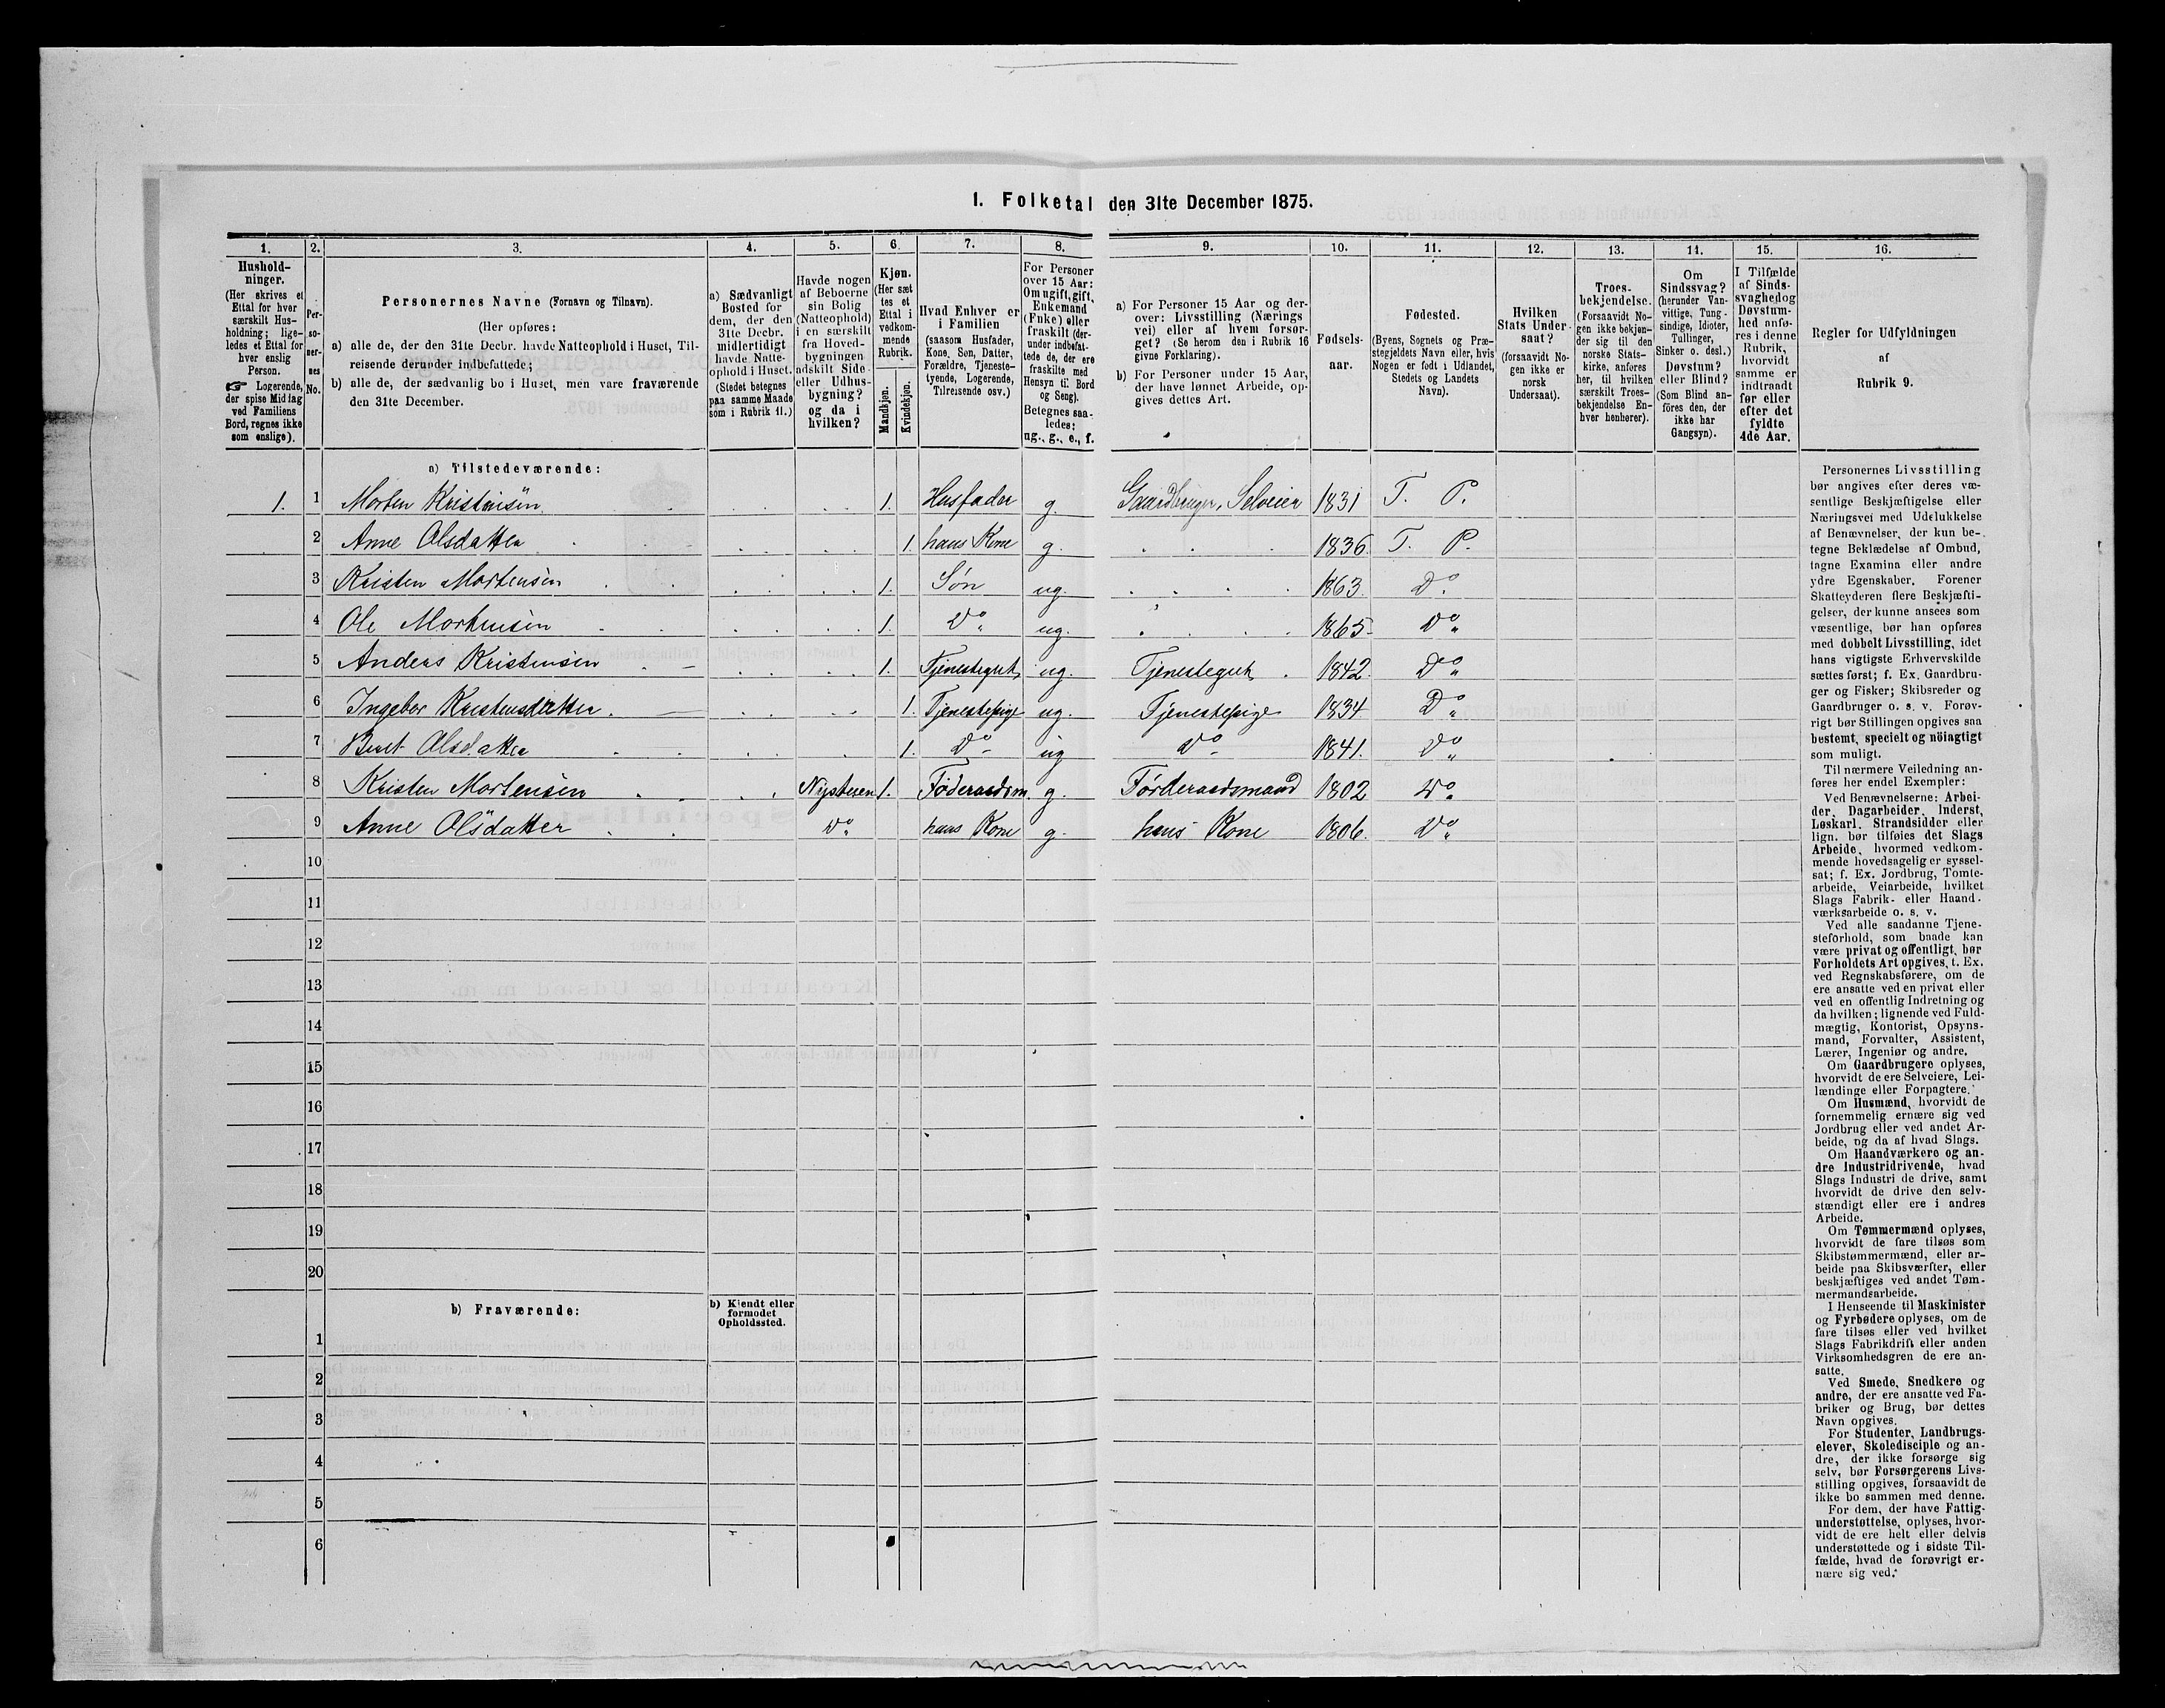 1. Folketal den 31te December 1875.
1. 2. 3. 4. 5. 6. 7. 8. 9. 10. 11. 12. 13. 14. 15. 16.
Hushold-
ninger.
(Her skrives et
Ettal for hver
særskilt Hus-
holdning; lige-
ledes et Ettal for
hver enslig
Person.
☞ Logerende,
der spise Middag
ved Familiens
Bord, regnes ikke
som enslige).
Per-
so-
ner-
nes
No.
Personernes Navne (Fornavn og Tilnavn).
(Her opføres:
a) alle de, der den 31te Decbr. havde Natteophold i Huset, Til-
reisende derunder indbefattede;
b) alle de, der sædvanlig bo i Huset, men vare fraværende
den 31te December.
a) Sædvanligt
Bosted for
dem, der den
31te Decbr.
midlertidigt
havde Natte-
ophold i Huset.
(Stedet betegnes
paa samme Maade
som i Rubrik 11.)
Havde nogen
af Beboerne
sin Bolig
(Natteophold)
i en særskilt
fra Hoved-
bygningen
adskilt Side-
eller Udhus-
bygning?
og da i
hvilken?
Kjøn.
(Her sæt
tes et
Ettal i
vedkom-
mende
Rubrik.
Mandkjøn.
Kvindekjøn.
Hvad Enhver er
i Familien
(saasom Husfader,
Kone, Søn, Datter,
Forældre, Tjeneste-
tyende, Logerende,
Tilreisende osv.)
For Personer
over 15 Aar:
Om ugift, gift,
Enkemand
(Enke) eller
fraskilt (der-
under indbefat-
tede de, der ere
fraskilte med
Hensyn til Bord
og Seng).
Betegnes saa-
ledes:
ug., g., e., f.
a) For Personer 15 Aar og der-
over: Livsstilling (Nærings
vei) eller af hvem forsør-
get? (Se herom den i Rubrik 16
givne Forklaring).
b) For Personer under 15 Aar,
der have lønnet Arbeide, op-
gives dettes Art.
Fødsels-
aar.
Fødested.
(Byens, Sognets og Præ-
stegjeldets Navn eller, hvis
Nogen er født i Udlandet,
Stedets og Landets
Navn).
Hvilken
Stats Under-
saat?
(forsaavidt No-
gen ikke er
norsk
Undersaat).
Troes-
bekjendelse.
(Forsaavidt No-
gen ikke bekjen-
der sig til den
norske Stats-
kirke, anføres
her, til hvilken
særskilt Troes-
bekjendelse En-
hver henhører).
Om
Sindssvag?
(herunder Van-
vittige, Tung-
sindige, Idioter,
Tullinger,
Sinker o. desl.)
Døvstum?
eller Blind?
(Som Blind an-
føres den, der
ikke har
Gangsyn).
I Tilfælde
af Sinds-
svaghed og
Døvstum-
hed anfø-
res i denne
Rubrik,
hvorvidt
samme er
indtraadt
før eller
efter det
fyldte
4de Aar.
Regler for Udfyldningen
af
Rubrik 9.
a) Tilstedeværende:
1. 1 Morten Kristensen 1. Husfader g. Gaardbruger, Selveier 1831 T. P.
2 Anne Olsdatter 1. hans Kone g. 1836 T. P.
3 Kristen Mortensen 1. Søn ug. 1863. Do.
4 Ole Mortensen 1. Do. ug. 1865 Do.
5 Anders Kristensen 1. Tjenestegut ug. Tjenestegut 1842. Do.
6 Ingebor Kristensdatter 1. Tjenestepige ug. Tjenestepige 1834 Do.
7 Beret Olsdatter 1. Do ug Do 1841. Do.
8 Kristen Mortensen Nystuen 1. Föderaadsm. g. Förderaadsmand 1802 Do.
9 Anne Olsdatter Do. hans Kone g. hans Kone 1806. Do.
10
11
12
13
14
15
16
17
18
19
20
b) Fraværende:
b) Kjendt eller
formodet
Opholdssted.
1
2
3
4
5
6
Personernes Livsstilling
bør angives efter deres væ-
sentlige Beskjæftigelse eller
Næringsvei med Udelukkelse
af Benævnelser, der kun be-
tegne Beklædelse af Ombud,
tagne Examina eller andre
ydre Egenskaber. Forener
Skatteyderen flere Beskjæfti-
gelser, der kunne ansees som
væsentlige, bør han opføres
med dobbelt Livsstilling, idet
hans vigtigste Erhvervskilde
sættes først; f. Ex. Gaardbru-
ger og Fisker; Skibsreder og
Gaardbruger o. s. v. Forøv-
rigt bør Stillingen opgives saa
bestemt, specielt og nöingtigt
som muligt.
Til nærmere Veiledning an-
føres her endel Exempler:
Ved Benævnelserne: Arbei-
der, Dagarbeider, Inderst,
Løskarl, Strandsidder eller
lign. bør tilføies det Slags
Arbeide, hvormed vedkom-
mende hovedsagelig er syssel-
sat; f. Ex. Jordbrug, Tomte-
arbeide, Veiarbeide, hvilket
Slags Fabrik- eller Haand-
værksarbeide o. s. v.
Ved alle saadanne Tjene-
steforhold, som baade kan
være privat og offentligt, bør
Forholdets Art opgives, t. Ex.
ved Regnskabsførere, om de
ere ansatte ved en privat eller
ved en offentlig Indretning og
da hvilken; lignende ved Fuld-
mægtig, Kontorist, Opsyns-
mand, Forvalter, Assistent,
Lærer, Ingeniør og andre.
Om Gaardbrugere oplyses,
hvorvidt de ere Selveiere, Lei-
lændinge eller Forpagtere.
Om Husmænd, hvorvidt de
fornemmelig ernære sig ved
Jordbrug eller ved andet Ar-
beide, og da af hvad Slags.
Om Haandværkere og an-
dre Industridrivende, hvad
Slags Industri de drive, samt
hvorvidt de drive den selv-
stændigt eller ere i andres
Arbeide.
Om Tømmermænd oplyses,
hvorvidt de fare tilsøs som
Skibstømmermænd, eller ar-
beide paa Skibsværfter, eller
beskjæftiges ved andet Tøm-
mermandsarbeide.
I Henseende til Maskinister
og Fyrbødere oplyses, om de
fare tilsøs eller ved hvilket
Slags Fabrikdrift eller anden
Virksomhedsgren de ere an-
satte.
Ved Smede, Snedkere og
andre, der ere ansatte ved Fa-
briker og Brug, bør dettes
Navn opgives.
For Studenter, Landbrugs-
elever, Skoledisciple og an-
dre, der ikke forsørge sig
selv, bør Forsørgerens Livs-
stilling opgives, forsaavidt de
ikke bo sammen med denne.
For dem, der have Fattig-
understøttelse, oplyses, hvor-
vidt de ere helt eller delvis
understøttede og i sidste Til-
fælde, hvad de forøvrigt er-
nære sig ved.